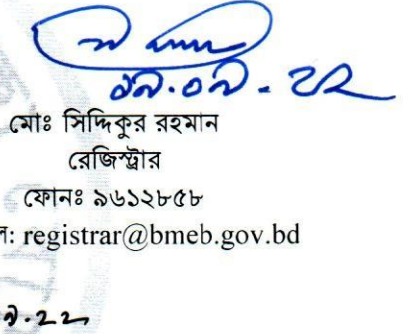 ০৯.০৯.২২
মোঃ সিদ্দিকুর রহমান
রেজিস্ট্রার
ফোনঃ ৯৬১২৮৫৮
registrar@bmeb.gov.bd
৯.২২